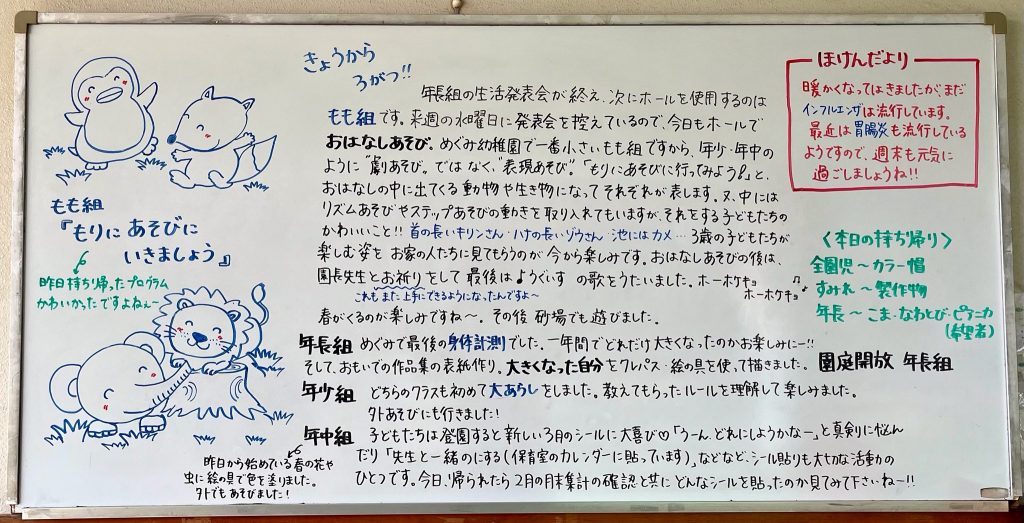 きょうから
3がつ!!
年長組の生活発表会が終え、次にホールを使用するのは
もも組です。来週の水曜日に発表会を控えているので、今日もホールで
おはなしあそび。めぐみ幼稚園で一番小さいもも組ですから、年少・年中の
ように"劇あそび"。ではなく、"表現あそび"。「もりにあそびに行ってみよう!」と、
おはなしの中に出てくる動物や生き物になってそれぞれが表します。又、中には
リズムあそびやステップあそびの動きを取り入れてもいますが、それをする子どもたちの
かわいいこと!! 首の長いキリンさん・ハナの長いゾウさん・池にはカメ… 3歳の子どもたちが
楽しむ姿をお家の人たちに見てもらうのが今から楽しみです。おはなしあそびの後は、
園長先生とお祈りをして最後はようぐいすの歌をうたいました。ホーホケキョ
ホーホケキョ
これもまた上手にできるようになったんですよ〜
春がくるのが楽しみですね〜。その後砂場でも遊びました。
年長組 めぐみで最後の身体計測でした。一年間でどれだけ大きくなったのかお楽しみに―!!
そして、おもいでの作品集の表紙作り。大きくなった自分をクレパス・絵の具を使って描きました。 園庭開放 年長組
年少組 どちらのクラスも初めて大あらしをしました。教えてもらったルールを理解して楽しみました。
外あそびにも行きました!
年中組 子どもたちは登園すると新しい3月のシールに大喜び♡「うーん、どれにしようかなー」と真剣に悩ん
だり「先生と一緒のにする(保育室のカレンダーに貼っています)」などなど、シール貼りも大切な活動の
ひとつです。今日、帰られたら2月の月末集計の確認と共にどんなシールを貼ったのか見てみて下さいねー!!
もも組
『もりにあそびに
いきましょう』
昨日持ち帰ったプログラム
かわいかったですよねぇ〜
昨日から始めている春の花や
虫に絵の具で色を塗りました。
外でもあそびました!
ほけんだより
暖かくなってはきましたが、まだ
インフルエンザは流行しています。
最近は胃腸炎も流行している
ようですので、週末も元気に
過ごしましょうね!!
〈本日の持ち帰り〉
全園児〜カラー帽
すみれ〜製作物
年長〜こま・なわとび・ピアニカ
(希望者)